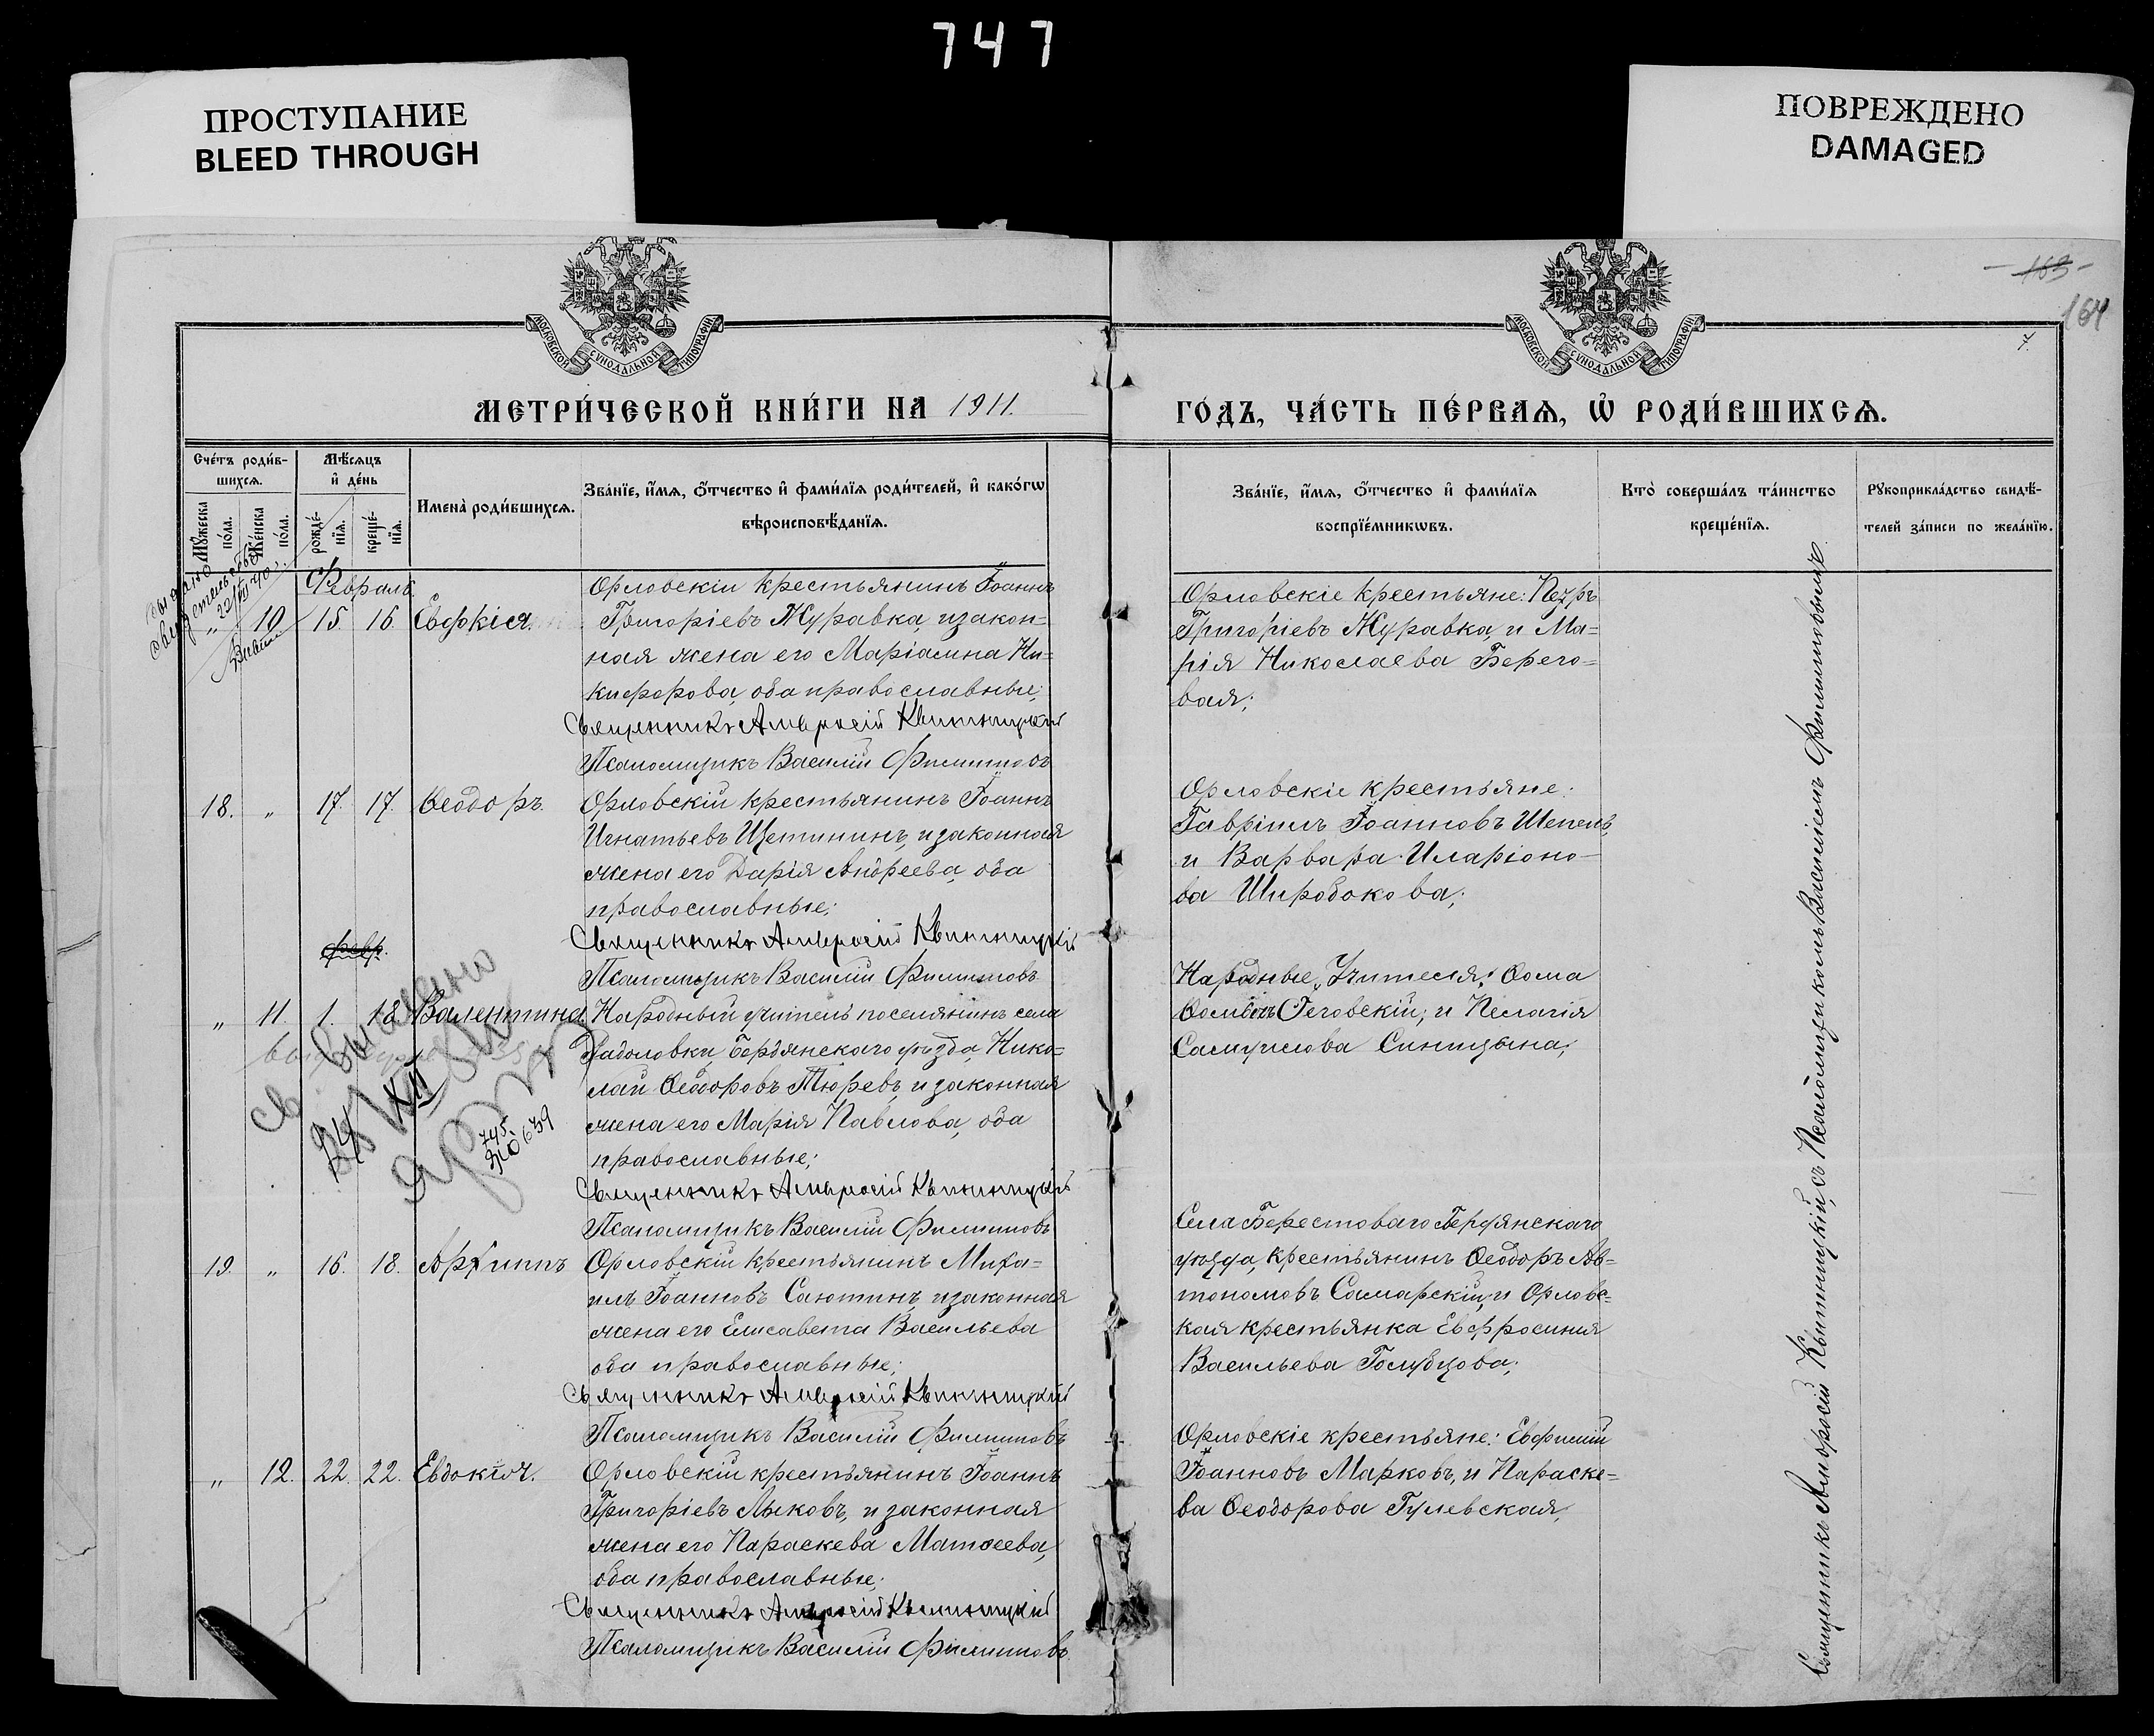 747
ПРОСТУПАНИЕ
BLEED THROUGH
ПОВРЕЖДЕНО
DAMAGED
163
164
7.
МОСКОВСКОЙ СѴНОДАЛЬНОЙ ТИПОГРАФІИ
МОСКОВСКОЙ СѴНОДАЛЬНОЙ ТИПОГРАФІИ
МЕТРИ́ЧЕСКОЙ КНИ́ГИ НА 1911.
ГО́ДЪ, ЧА́СТЬ ПЕ́РВАѦ, Ѡ҆ РОДИ́ВШИХСѦ.
Сче́тъ роди́в-
шихсѧ.
Мꙋ́жеска
по́ла.
Же́нска
по́ла.
Мѣ́сѧцъ
и҆ де́нь
рожде́-
нїѧ.
креще́-
нїѧ.
Имена̀ роди́вшихсѧ.
Зва́нїе, и҆́мѧ, ѻ҆́тчество и҆ фами́лїѧ роди́телей, и҆ како́гѡ
вѣроисповѣ́данїѧ.
Зва́нїе, и҆́мѧ, ѻ҆́тчество и҆ фами́лїѧ
воспрїе́мникѡвъ.
Кто̀ соверша́лъ та́инство
креще́нїѧ.
Рꙋкоприкла́дство свидѣ́-
телей за́писи по жела́нїю.
выдано
свидетельство
Февраль
" 10 15. 16. Евдокія.
Орловскій крестьянинъ Іоаннъ
Григоріевъ Журавка, и закон=
ная жена его Маріамна Ни=
кифорова, оба православные;
Священникъ Амвросій Квитницкій
Псаломщикъ Василій Филипповъ
Орловскіе крестьяне: Петръ
Григоріевъ Журавка, и Ма=
рія Николаева Берего=
вая;
18. " 17. 17. Ѳеодоръ.
Орловскій крестьянинъ Іоаннъ
Игнатьевъ Щетининъ, и законная
жена его Дарія Андреева, оба
православные;
Священникъ Амвросій Квитницкій
Псаломщикъ Василій Филипповъ
Орловскіе крестьяне:
Гавріилъ Іоанновъ Шепель,
и Варвара Иларіоно-
ва Широбокова;
февр.
" 11. 1. 18. Валентина.
Народный учитель поселянинъ села
Бердянскаго уѣзда, Нико=
лай Ѳеодоровъ Тюревъ, и законная
жена его Марія Павлова, оба
православные;
Священникъ Амвросій Квитницкій
Псаломщикъ Василій Филипповъ
Народные учителя: Ѳома
и Пелагія
Самуилова Синицына;
19. " 16. 18. Архиппъ
Орловскій крестьянинъ Миха=
илъ Іоанновъ Саютинъ, и законная
жена его Елисавета Васильева
оба православные;
Священникъ Амвросій Квитницкій
Псаломщикъ Василій Филипповъ
Села Берестоваго Бердянскаго
уѣзда, крестьянинъ Ѳеодоръ Ав=
тономовъ Самарскій, и Орловс=
кая крестьянка Евфросинія
Васильева Голубцова;
" 12. 22. 22. Евдокія.
Орловскій крестьянинъ Іоаннъ
Григоріевъ Лыковъ, и законная
жена его Параскева Матѳеева,
оба православные;
Священникъ Амвросій Квитницкій
Псаломщикъ Василій Филипповъ.
Орловскіе крестьяне: Евфимій
Іоанновъ Марковъ, и Параске=
ва Ѳеодорова Гулевская;
Священникъ Амвросій Квитницкій, съ Псаломщикомъ Василіемъ Филипповымъ